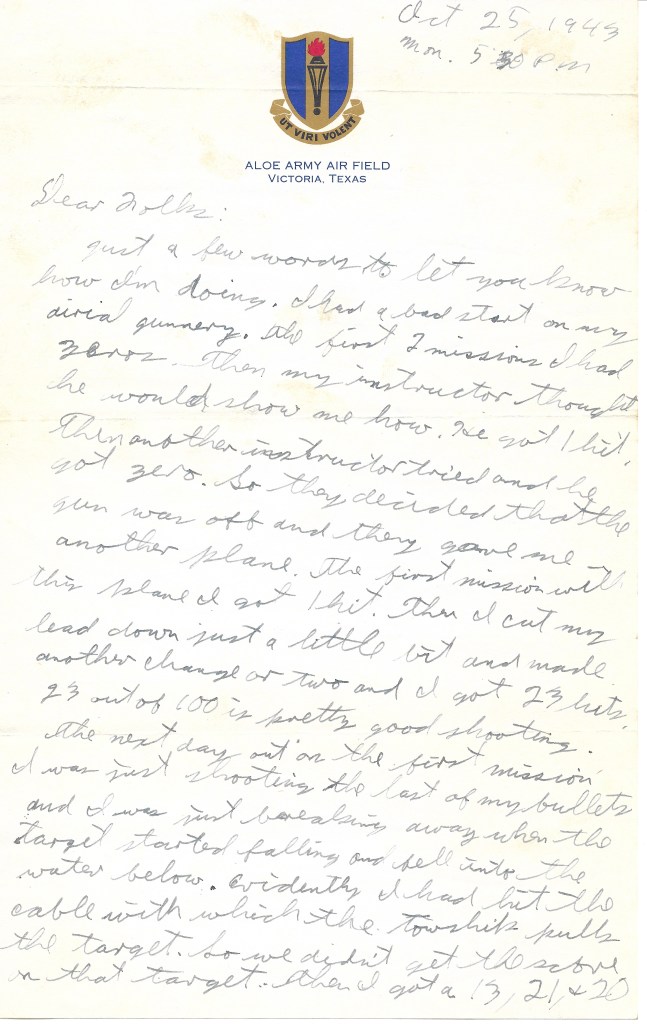 Oct 25, 1943
Mon. 5 30 P.M
UT VIRI VOLENT
ALOE ARMY AIR FIELD
VICTORIA, TEXAS
Dear Folks:
Just a few words to let you know
how I'm doing. I had a bad start on my
airial gunnery. The first 2 missions I had
zeros. Then my instructor thought
he would show me how. He got 1 hit.
Then another instructor tried and he
got zero. So they decided that the
gun was off and they gave me
another plane. The first mission with
this plane I got 1 hit. Then I cut my
lead down just a little bit and made
another change or two and I got 23 hits.
23 out of 100 is pretty good shooting.
The next day out on the first mission
I was just shooting the last of my bullets
and I was just breaking away when the
target started falling and fell into the
water below. Evidently I had hit the
cable with which the towship pulls
the target. So we didn't get the score
on that target. Then I got a 13, 21, & 20